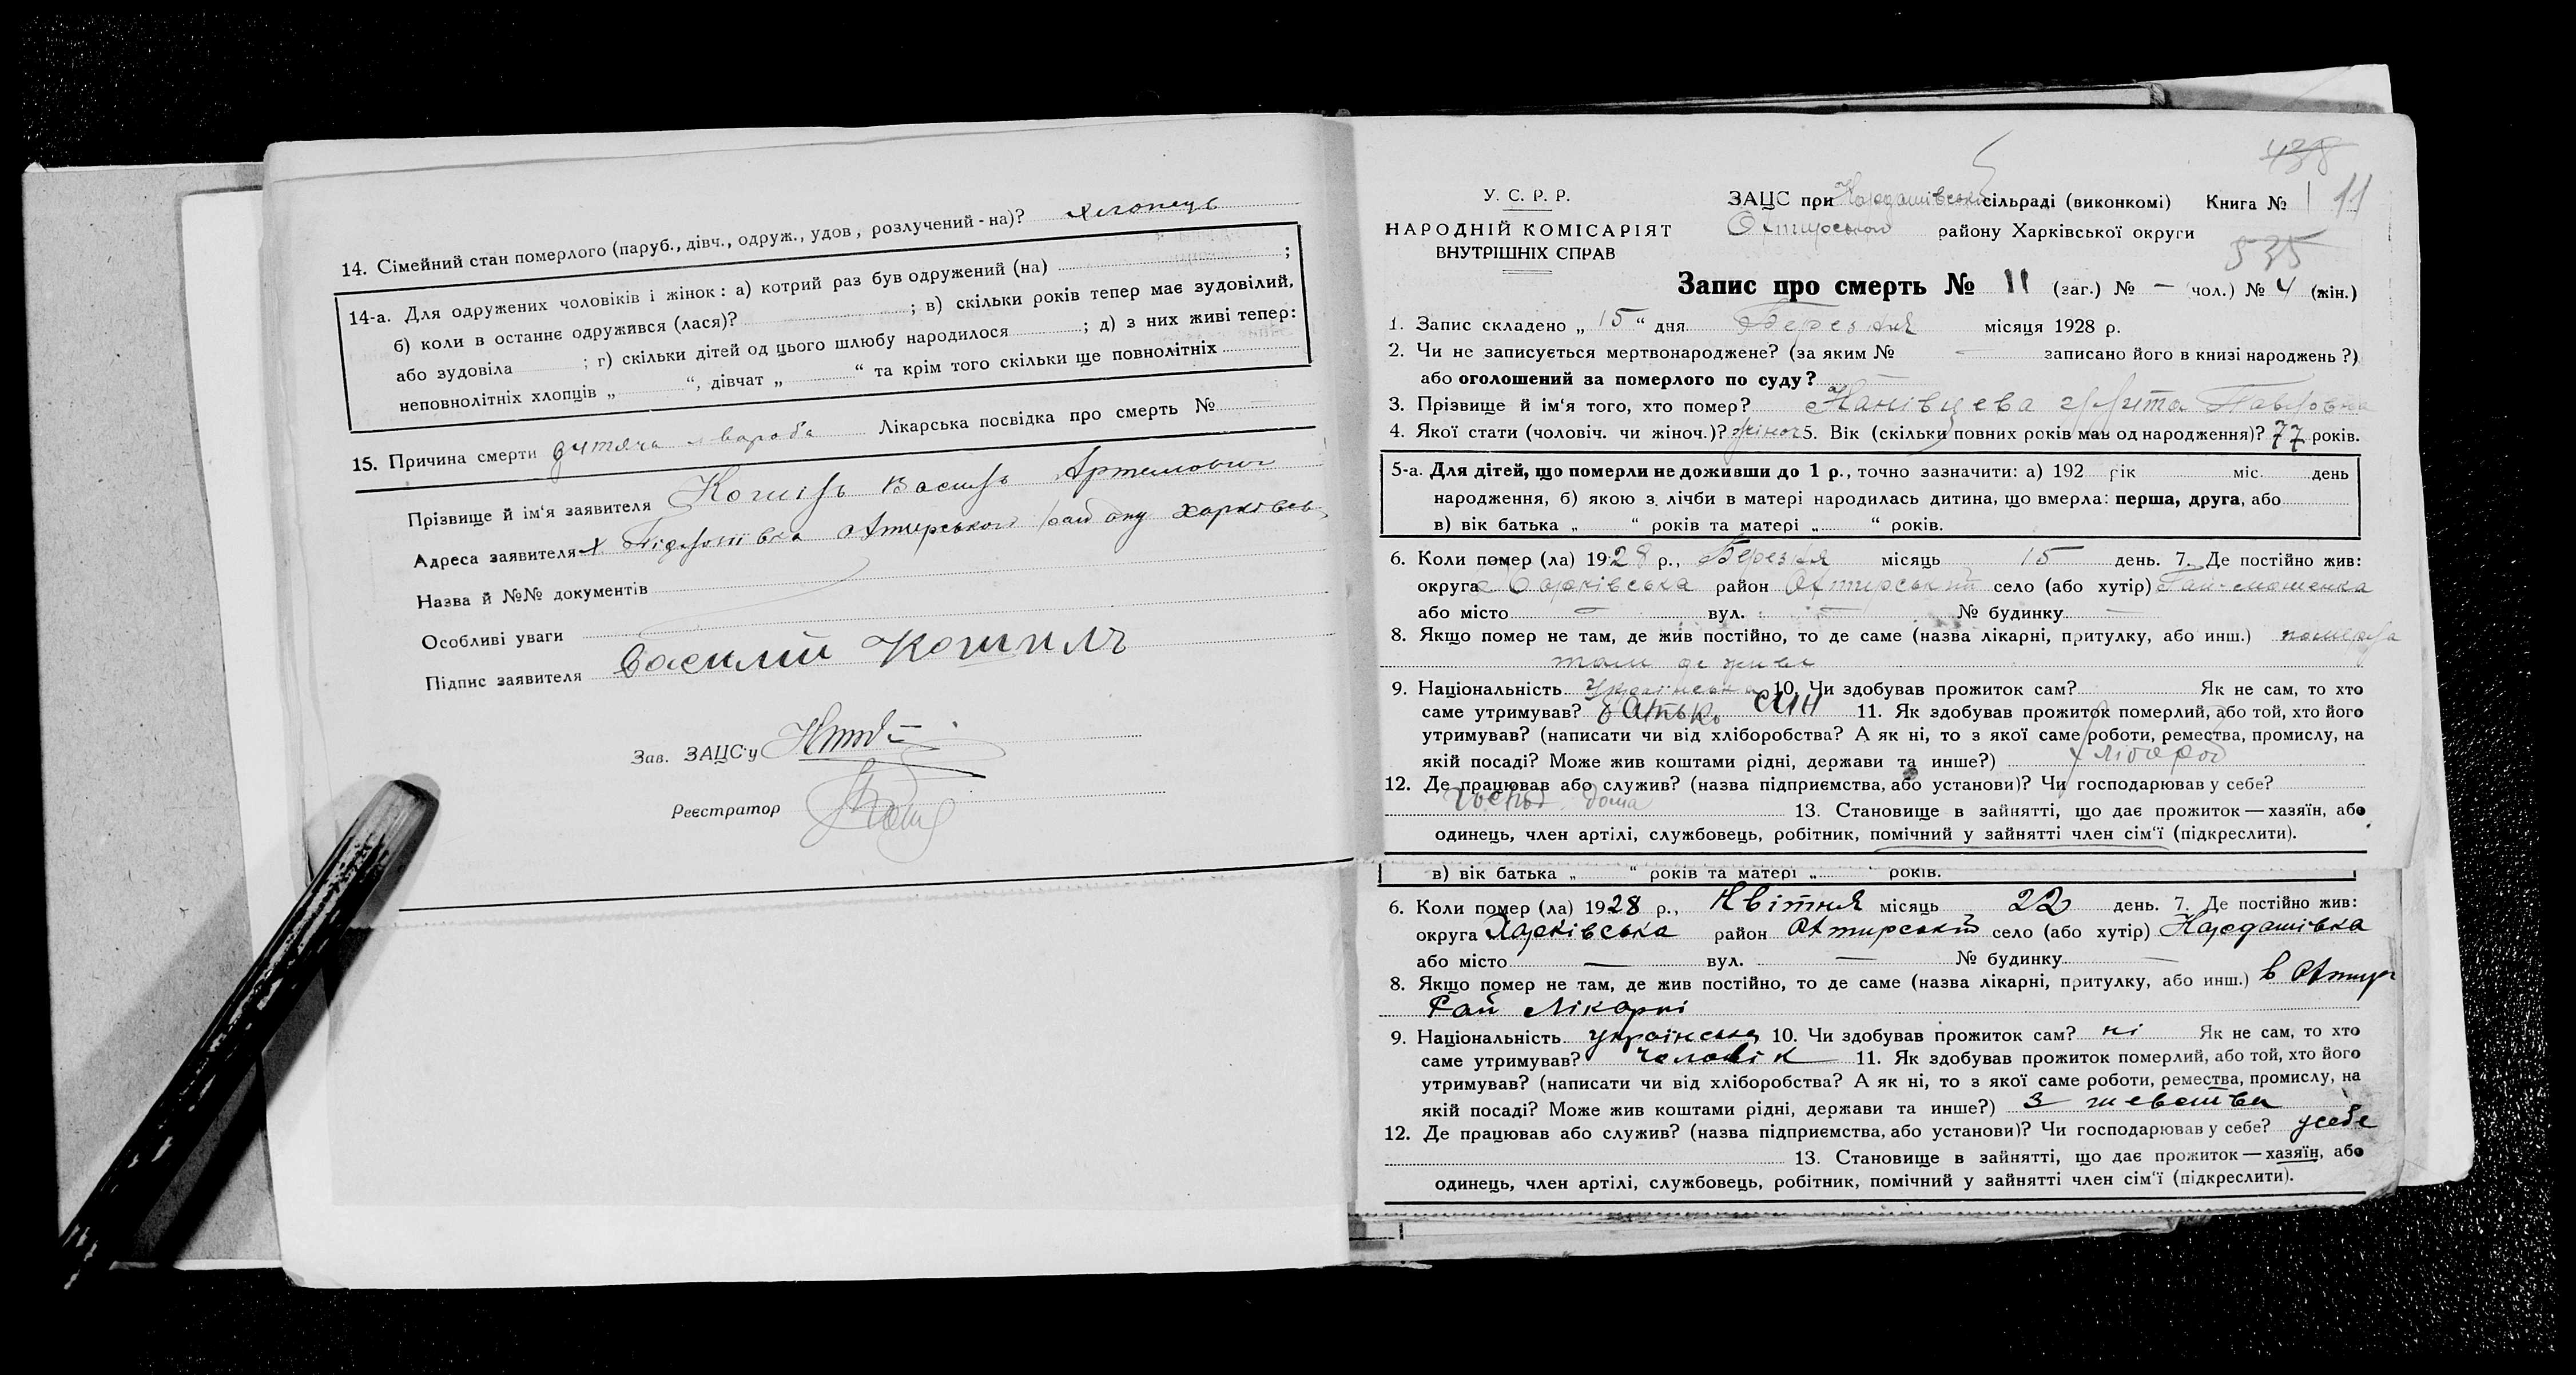 14. Сімейний стан померлого (паруб., дівч., одруж., удов, розлучений-на)? хлопець
14-а. Для одружених чоловіків і жінок: а) котрий раз був одружений (на) ;
б) коли в останнє одружився (лася)? ; в) скільки років тепер має зудовілий,
або зудовіла ; г) скільки дітей од цього шлюбу народилося ; д) з них живі тепер:
неповнолітніх хлопців „ “, дівчат „ “ та крім того скільки ще повнолітніх
15. Причина смерти дитяча хвороба Лікарська посвідка про смерть № —
Прізвище й ім'я заявителя Кошіль Василь Артемович
Адреса заявителя х Підлозіївка Охтирського району Харківськ
Назва й №№ документів
Особливі уваги
Підпис заявителя Василий Кошиль
Зав. ЗАЦС'у
Реєстратор
438
У. С. Р. Р.
НАРОДНІЙ КОМІСАРІЯТ
ВНУТРІШНІХ СПРАВ
ЗАЦС при Кардашівській сільраді (виконкомі) Книга № 1 11
Охтирського району Харківської округи
535
Запис про смерть № 11 (заг.) № — чол.) № 4 (жін.)
1. Запис складено „ 15 “ дня Березня місяця 1928 р.
2. Чи не записується мертвонароджене? (за яким № — записано його в книзі народжень?)
або оголошений за померлого по суду? —
3. Прізвище й ім'я того, хто помер? Канівцева Павловна
4. Якої стати (чоловіч. чи жіноч.)? жіноч 5. Вік (скільки повних років мав од народження)? 77 років.
5-а. Для дітей, що померли не доживши до 1 р., точно зазначити: а) 192 рік міс. день
народження, б) якою з лічби в матері народилась дитина, що вмерла: перша, друга, або
в) вік батька „ “ років та матері „ “ років.
6. Коли помер (ла) 1928 р., Березня місяць 15 день. 7. Де постійно жив:
округа Харківська район Охтирський село (або хутір) Гай-Мошенка
або місто — вул. — № будинку —
8. Якщо помер не там, де жив постійно, то де саме (назва лікарні, притулку, або инш.) померла
там де жила
9. Національність українська 10. Чи здобував прожиток сам? Як не сам, то хто
саме утримував? батько син 11. Як здобував прожиток померлий, або той, хто його
утримував? (написати чи від хліборобства? А як ні, то з якої саме роботи, ремества, промислу, на
якій посаді? Може жив коштами рідні, держави та инше?) хлібороб
12. Де працював або служив? (назва підприємства, або установи)? Чи господарював у себе?
господ. дома 13. Становище в зайнятті, що дає прожиток — хазяїн, або
одинець, член артілі, службовець, робітник, помічний у зайнятті член сім'ї (підкреслити).
в) вік батька „ “ років та матері „ “ років.
6. Коли помер (ла) 1928 р., Квітня місяць 22 день. 7. Де постійно жив:
округа Харківська район Охтирський село (або хутір) Кардашівка
або місто — вул. — № будинку —
8. Якщо помер не там, де жив постійно, то де саме (назва лікарні, притулку, або инш.) в Охтир
Рай Лікарні
9. Національність українська 10. Чи здобував прожиток сам? ні Як не сам, то хто
саме утримував? чоловік 11. Як здобував прожиток померлий, або той, хто його
утримував? (написати чи від хліборобства? А як ні, то з якої саме роботи, ремества, промислу, на
якій посаді? Може жив коштами рідні, держави та инше?) з шевства
12. Де працював або служив? (назва підприємства, або установи)? Чи господарював у себе? у себе
13. Становище в зайнятті, що дає прожиток — хазяїн, або
одинець, член артілі, службовець, робітник, помічний у зайнятті член сім'ї (підкреслити).